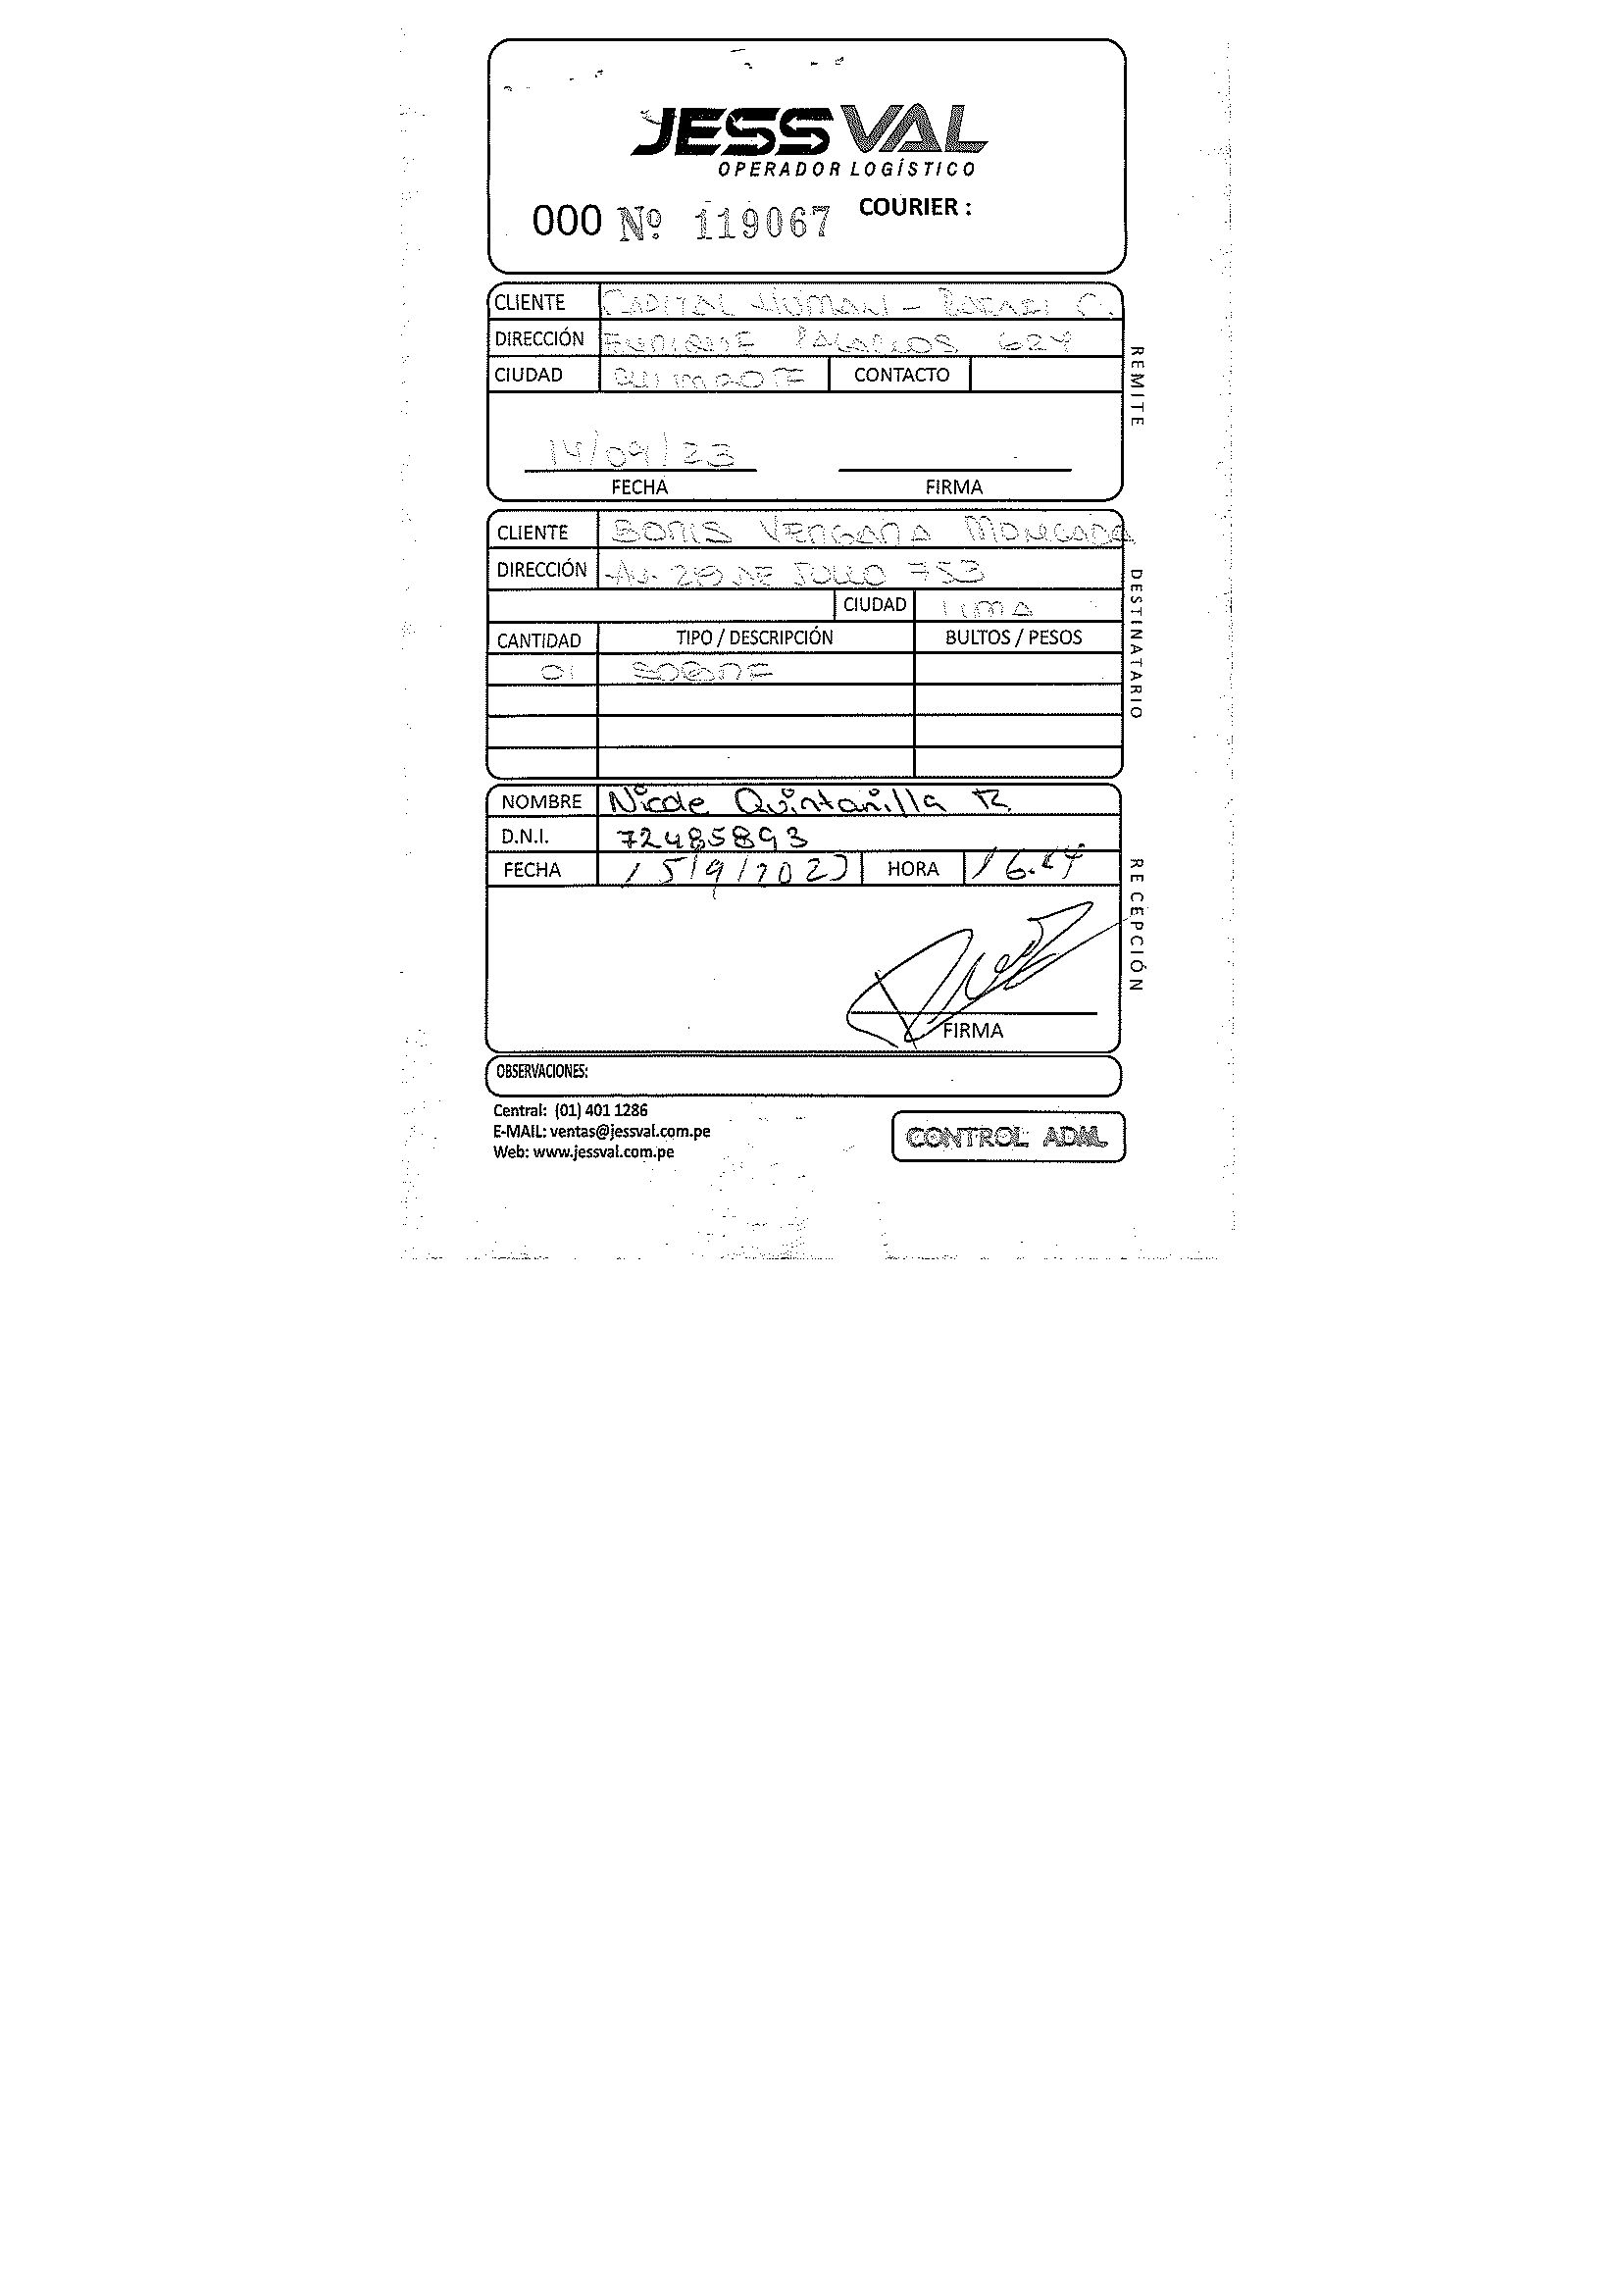 JESSVAL
OPERADOR LOGÍSTICO
000 Nº 119067 COURIER :
CLIENTE CAPITAL HUMAN - RAFAEL C.
DIRECCIÓN ENRIQUE PALACIOS 624
CIUDAD CHIMBOTE CONTACTO
REMITE
14/09/23
FECHA FIRMA
CLIENTE BORIS VERGARA MONCADA
DIRECCIÓN AV. 28 DE JULIO 753
CIUDAD LIMA
DESTINATARIO
CANTIDAD TIPO / DESCRIPCIÓN BULTOS / PESOS
01 SOBRE
NOMBRE Nicole Quintanilla R.
D.N.I. 72485893
FECHA 15/9/2023 HORA
RECEPCIÓN
FIRMA
OBSERVACIONES:
Central: (01) 401 1286
E-MAIL: ventas@jessval.com.pe
Web: www.jessval.com.pe
CONTROL ADM.